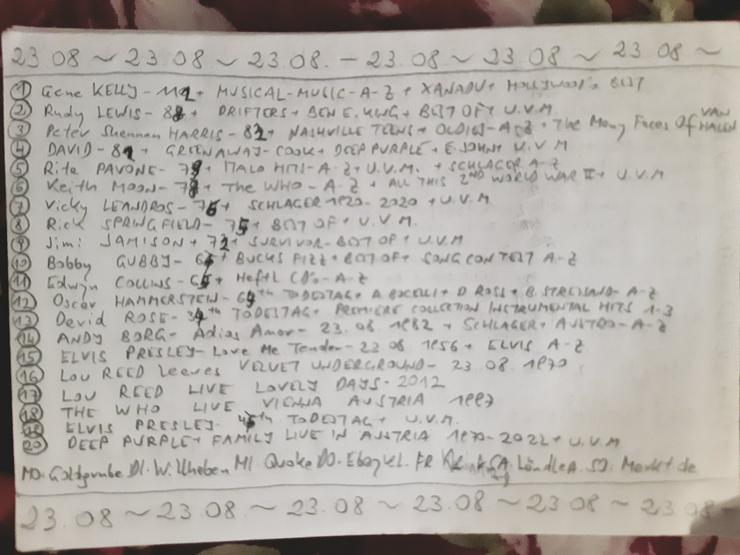 23.08 ~ 23.08 ~ 23.08. - 23.08 ~ 23.08 ~ 23.08 ~
① Gene KELLY - 112 + MUSICAL - MUSIC - A-Z + XANADU + HOLLYWOOD'S BEST
② Rudy LEWIS - 88 + DRIFTERS + BEN E. KING + BEST OF + U.V.M.
③ Peter Shannan HARRIS - 82 + NASHVILLE TEENS + OLDIES - A-Z + The Many Faces Of VAN HALEN
④ DAVID - 82 + GREENAWAY - COOK + DEEP PURPLE + E. JOHN + U.V.M
⑤ Rita PAVONE - 79 + ITALO HITS - A-Z + U.V.M. + SCHLAGER A-Z
⑥ Keith MOON - 78 + The WHO - A-Z + ALL THIS 2ND WORLD WAR II + U.V.M
⑦ Vicky LEANDROS - 76 + SCHLAGER 1970 - 2020 + U.V.M
⑧ Rick SPRINGFIELD - 75 + BEST OF + U.V.M.
⑨ Jimi JAMISON + 72 + SURVIVOR - BEST OF + U.V.M
⑩ Bobby GUBBY - + BUCKS FIZZ + BEST OF + SONG CONTEST A-Z
⑪ Edwyn COLLINS - + Heftl CD's - A-Z
⑫ Oscar HAMMERSTEIN - TODESTAG + A. BOCELLI + D. ROSS + B. STREISAND - A-Z
⑬ David ROSE - TODESTAG + PREMIERE COLLECTION INSTRUMENTAL HITS 1-3
⑭ ANDY BORG - Adios Amor - 23.08.1982 + SCHLAGER + AUSTRO - A-Z
⑮ ELVIS PRESLEY - Love Me Tender - 23 08 1956 + ELVIS A-Z
⑯ Lou REED Leaves VELVET UNDERGROUND - 23.08.1970
⑰ LOU REED LIVE LOVELY DAYS - 2012
⑱ THE WHO LIVE VIENNA AUSTRIA 1997
⑲ ELVIS PRESLEY - 45th TODESTAG + U.V.M.
⑳ DEEP PURPLE + FAMILY LIVE IN AUSTRIA 1970 - 2022 + U.V.M
MO. Goldgrube DI. W. MI. Quoka DO. Ebay KL. FR SA. LändleA. SO. Markt de
23.08 ~ 23.08 ~ 23.08 ~ 23.08 ~ 23.08 ~ 23.08